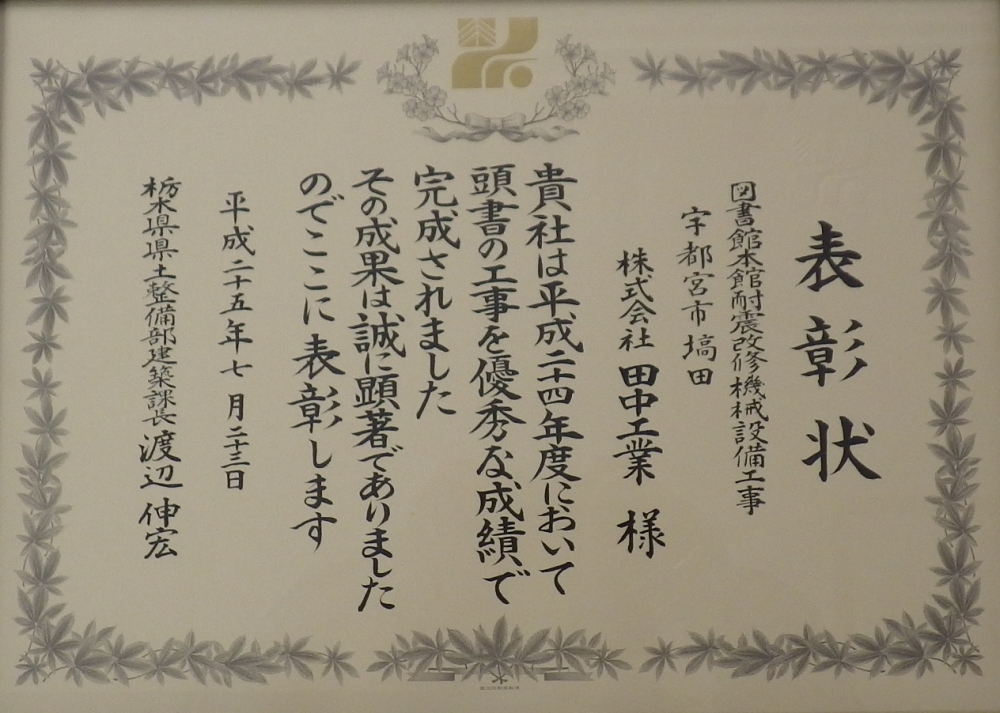 表彰状
図書館本館耐震改修機械設備工事
宇都宮市塙田
株式会社 田中工業 様
貴社は平成二十四年度において
頭書の工事を優秀な成績で
完成されました
その成果は誠に顕著でありました
のでここに表彰します
平成二十五年七月二十三日
栃木県県土整備部建築課長 渡辺 伸宏